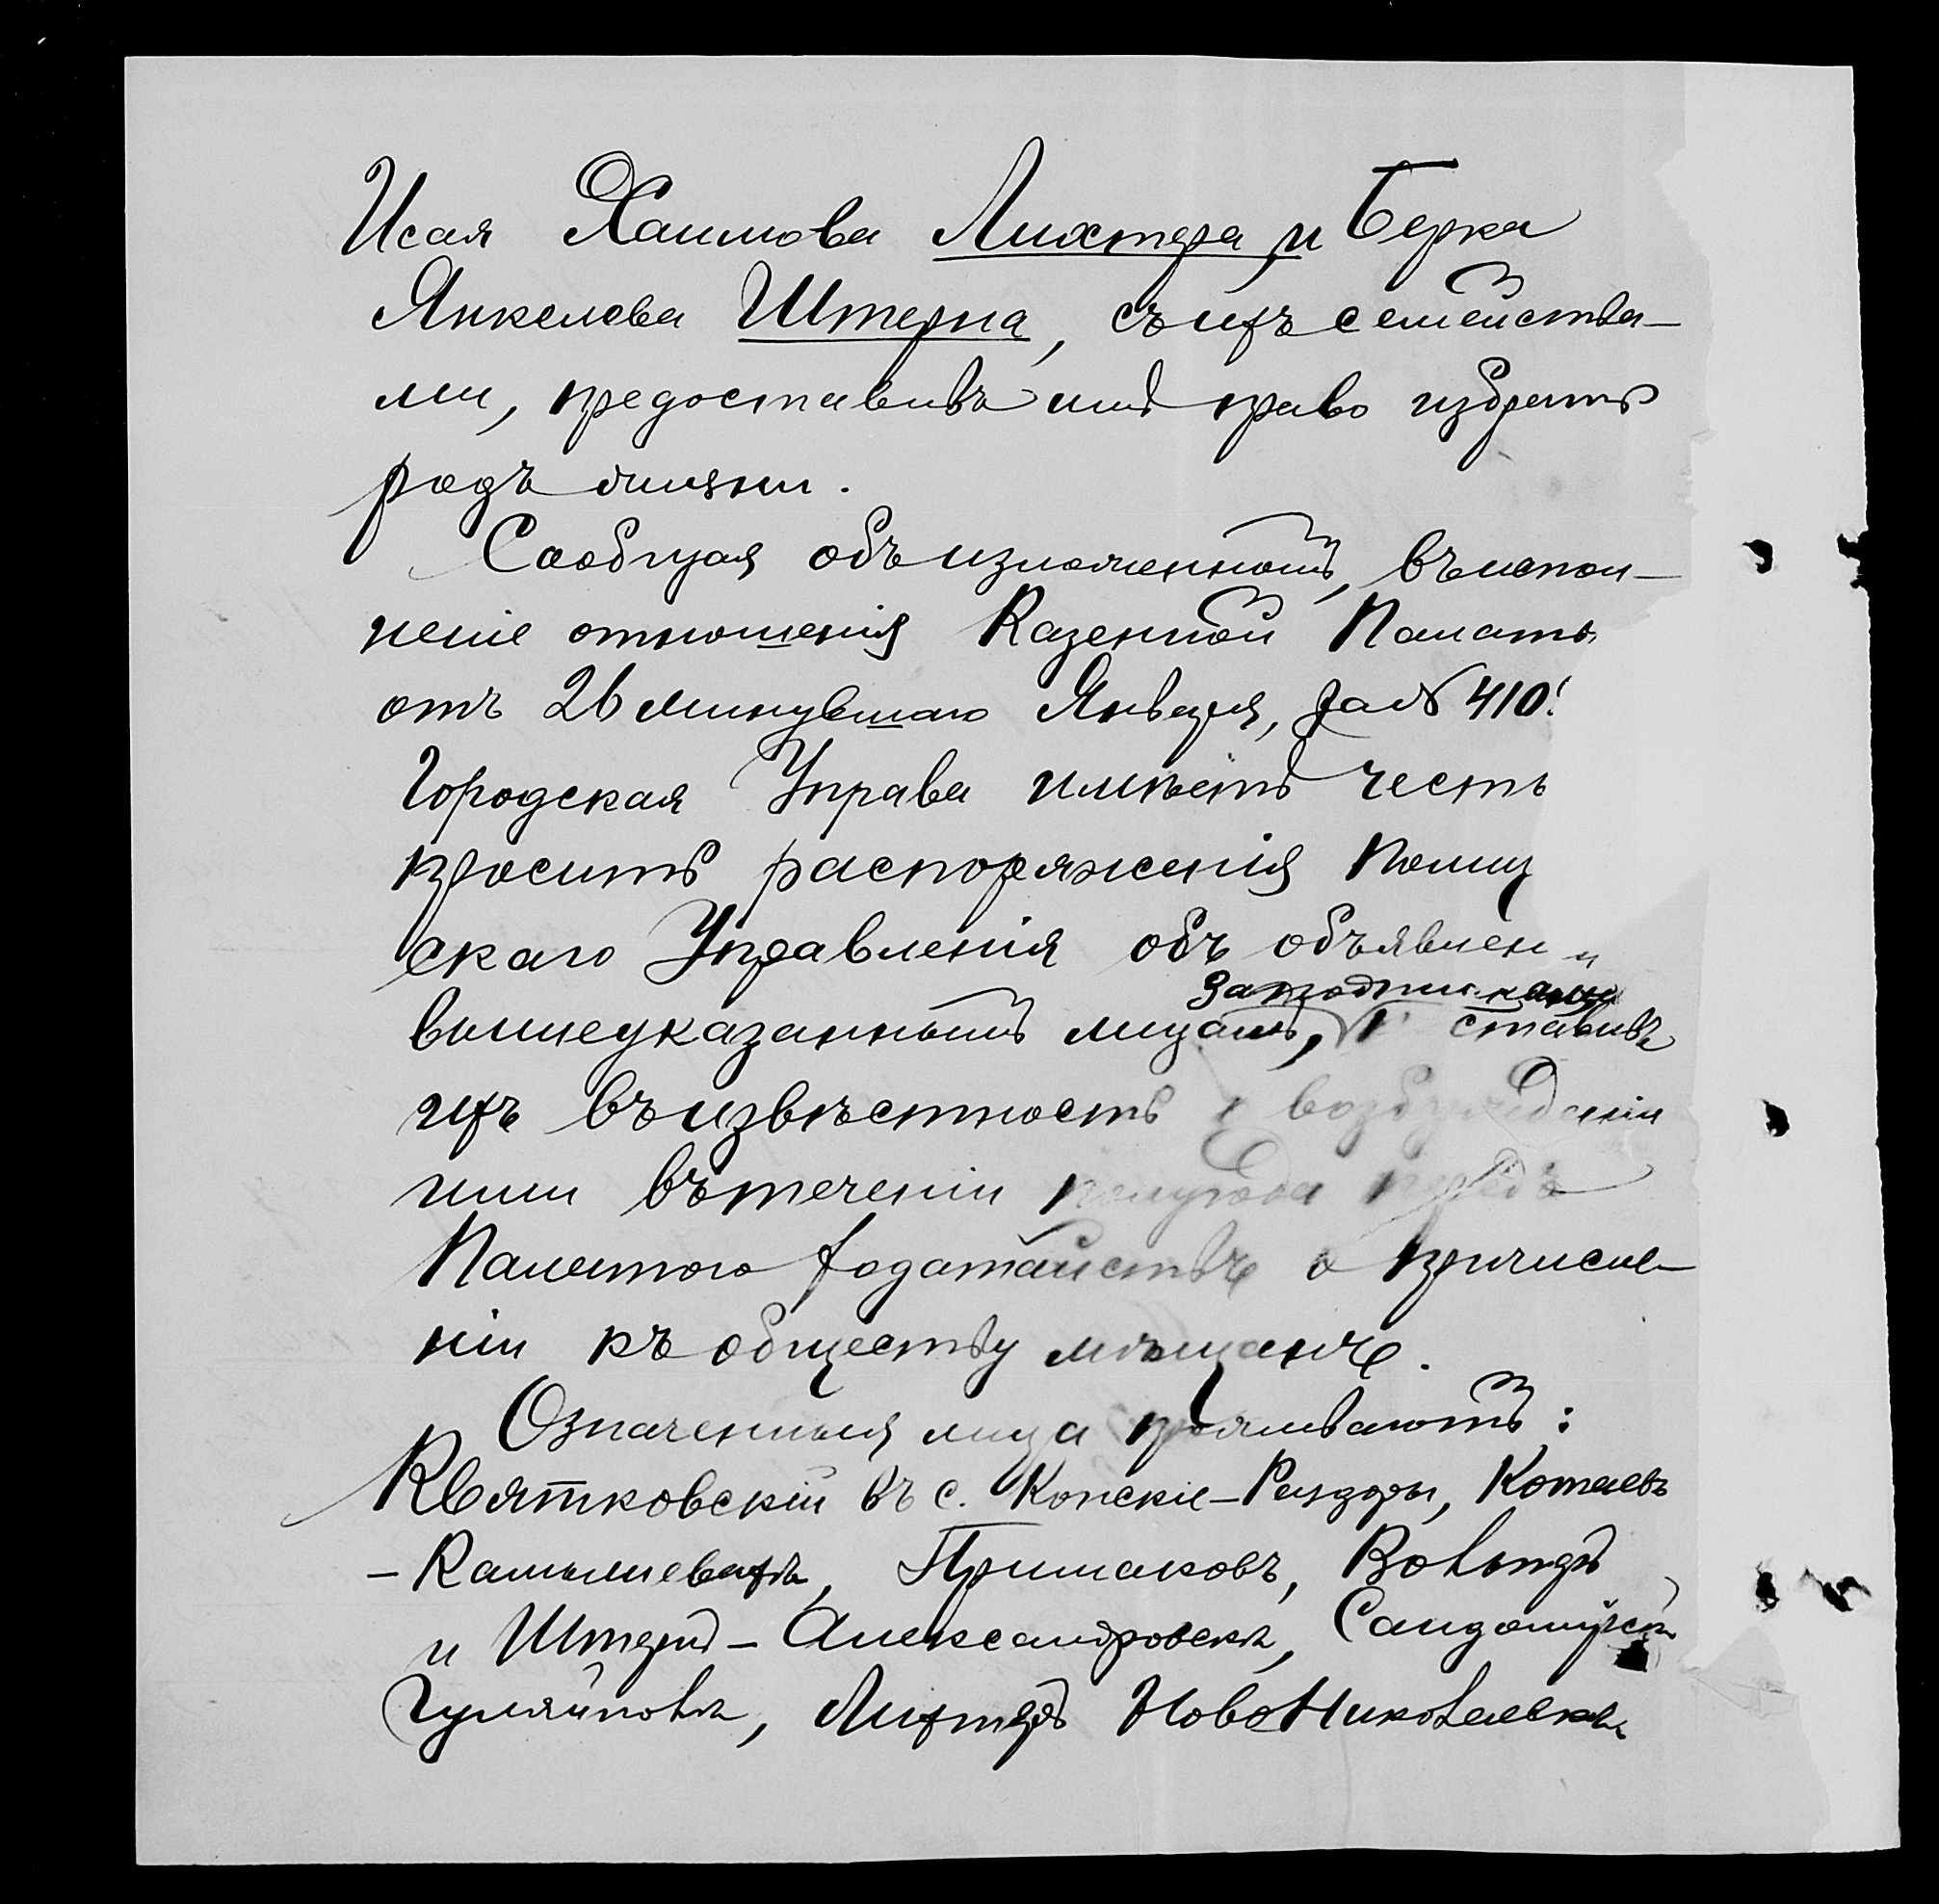 Исая Хаимова Лихтера, и Берка
Янкелева Штерна, съ ихъ семейства-
ми, предоставивъ имъ право избрать
родъ жизни.
Сообщая объ изложенномъ, въ испол-
неніе отношенія Казенной Палаты
отъ 26 минувшаго Января, за № 410
Городская Управа имѣетъ честь
просить распоряженія Полиц
скаго Управленія объ объявлен и
вышеуказаннымъ лицамъ, ставивъ
ихъ въ извѣстность о возбужденіи
ими въ теченіи полугода предъ
Палатою ходатайствѣ о причисле-
ніи къ обществу мѣщанъ.
Означенныя лица проживаютъ:
Квятковскій въ с. Конскіе-Раздоры, Котлевъ
- Камышевахѣ, Примаковъ,
и Штернъ - Александровскѣ, Сандомирск
Гуляйполѣ, Лихтеръ НовоНиколаевкѣ